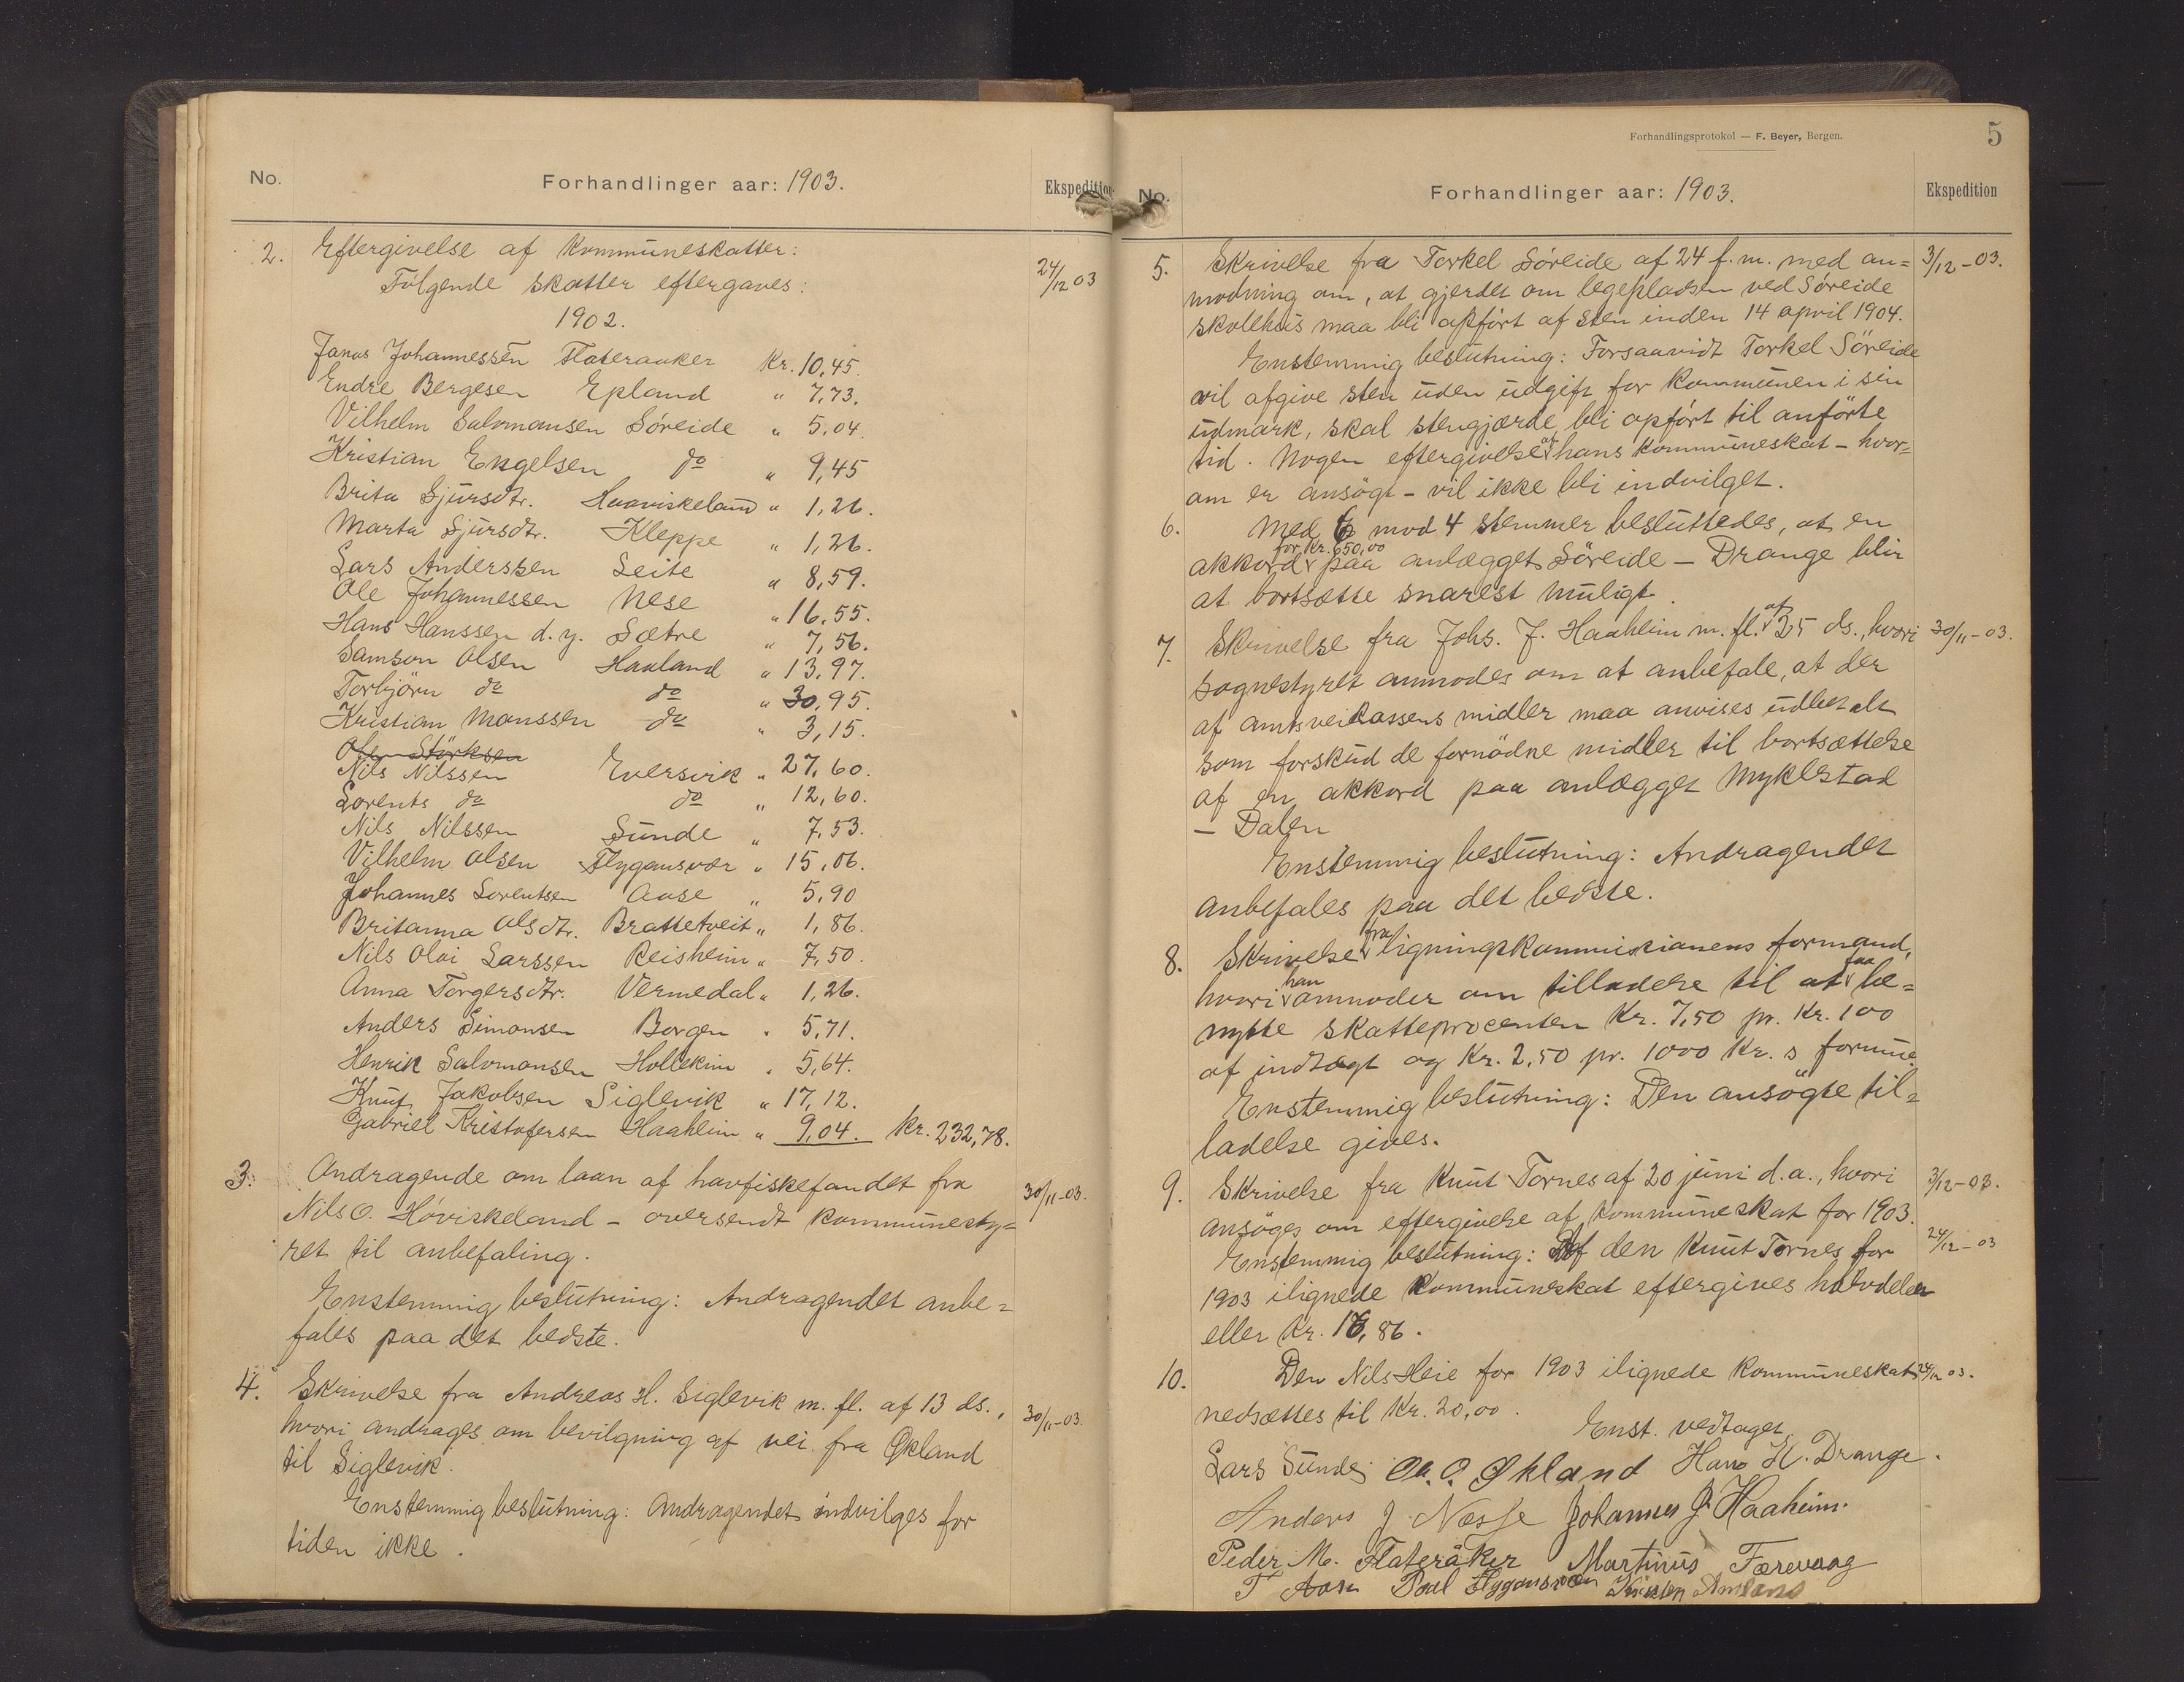 No.
Forhandlinger aar: 1903.
Ekspedition
2. Eftergivelse af kommuneskatter: 24/12 03
Følgende skatter eftergaves:
1902.
Janas Johannessen Flateraaker Kr. 10,45.
Endre Bergesen Epland " 7,73.
Vilhelm Salomonsen Söreide " 5,04.
Kristian Engelsen do " 9,45
Brita Sjursdtr. Haaviskeland " 1,26.
Marta Sjursdtr. Kleppe " 1,26.
Lars Anderssen Leite " 8,59.
Ole Johannessen Nese " 16,55.
Hans Hanssen d. y. Sætre " 7,56.
Samson Olsen Haaland " 13,97.
Torbjörn do do " 30,95.
Kristian Monssen do " 3,15.
Ole Störksen
Nils Nilssen Eversvik " 27,60.
Lorents do do " 12,60.
Nils Nilssen Sunde " 7,53.
Vilhelm Olsen Flygansvær " 15,06.
Johannes Lorentsen Aase " 5,90
Britanna Olsdtr. Brattetveit " 1,86.
Nils Olai Larssen Reisheim " 7,50.
Anna Torgersdtr. Vermedal " 1,26.
Anders Simonsen Borgen " 5,71.
Henrik Salomonsen Hollekim " 5,64.
Knut Jakobsen Siglevik " 17,12.
Gabriel Kristofersen Haaheim " 9,04. Kr. 232,78.
3. Andragende om laan af havfiskefondet fra 30/11-03.
Nils O. Höviskeland - oversendt kommunesty=
ret til anbefaling.
Enstemmig beslutning: Andragendet anbe=
fales paa det bedste.
4. Skrivelse fra Andreas H. Siglevik m. fl. af 13 ds., 30/11-03.
hvori andrages om bevilgning af vei fra Økland
til Siglevik.
Enstemmig beslutning: Andragendet indvilges for
tiden ikke.
Forhandlingsprotokol — F. Beyer, Bergen.
5
No.
Forhandlinger aar: 1903.
Ekspedition
5. Skrivelse fra Torkel Söreide af 24 f. m. med an= 3/12-03.
modning om, at gjerdet om legepladsen ved Söreide
skolehus maa bli opfört af sten inden 14 april 1904.
Enstemmig beslutning: Forsaavidt Torkel Söreide
vil afgive sten uden udgift for kommunen i sin
udmark, skal stengjærde bli opfört til anförte
tid. Nogen eftergivelse af hans kommuneskat - hvor=
om er ansögt - vil ikke bli indvilget.
6. Med 6 mod 4 stemmer besluttedes, at en
akkord for Kr. 650,00 paa anlægget Söreide - Drange blir
at bortsætte snarest muligt.
7. Skrivelse fra Johs. J. Haaheim m. fl. af 25 ds., hvori 30/11-03.
sognestyret anmodes om at anbefale, at der
af amtsveikassens midler maa anvises udbetalt
som forskud de fornödne midler til bortsættelse
af en akkord paa anlægget Myklestad
- Dalen
Enstemmig beslutning: Andragendet
anbefales paa det bedste.
8. Skrivelse fra ligningskommissionens formand,
hvori han anmoder om tilladelse til at faa be=
nytte skatteprocenten Kr. 7,50 pr. Kr. 100
af indtægt og Kr. 2,50 pr. 1000 Kr.s formue.
Enstemmig beslutning: Den ansögte til=
ladelse gives.
9. Skrivelse fra Knut Tornes af 20 juni d.a., hvori 3/12-03.
ansöges om eftergivelse af kommuneskat for 1903.
Enstemmig beslutning: Af den Knut Tornes for 24/12-03
1903 ilignede kommuneskat eftergives halvdelen
eller Kr. 16,86.
10. Den Nils Heie for 1903 ilignede kommuneskat 24/12 03.
nedsættes til Kr. 20,00.
Enst. vedtaget.
Lars Sunde O. O. Økland Hans H. Drange.
Anders J. Nesse Johannes J. Haaheim.
Peder M. Flateråker Martinus Færevaag
T Aase Poul Flygansvær